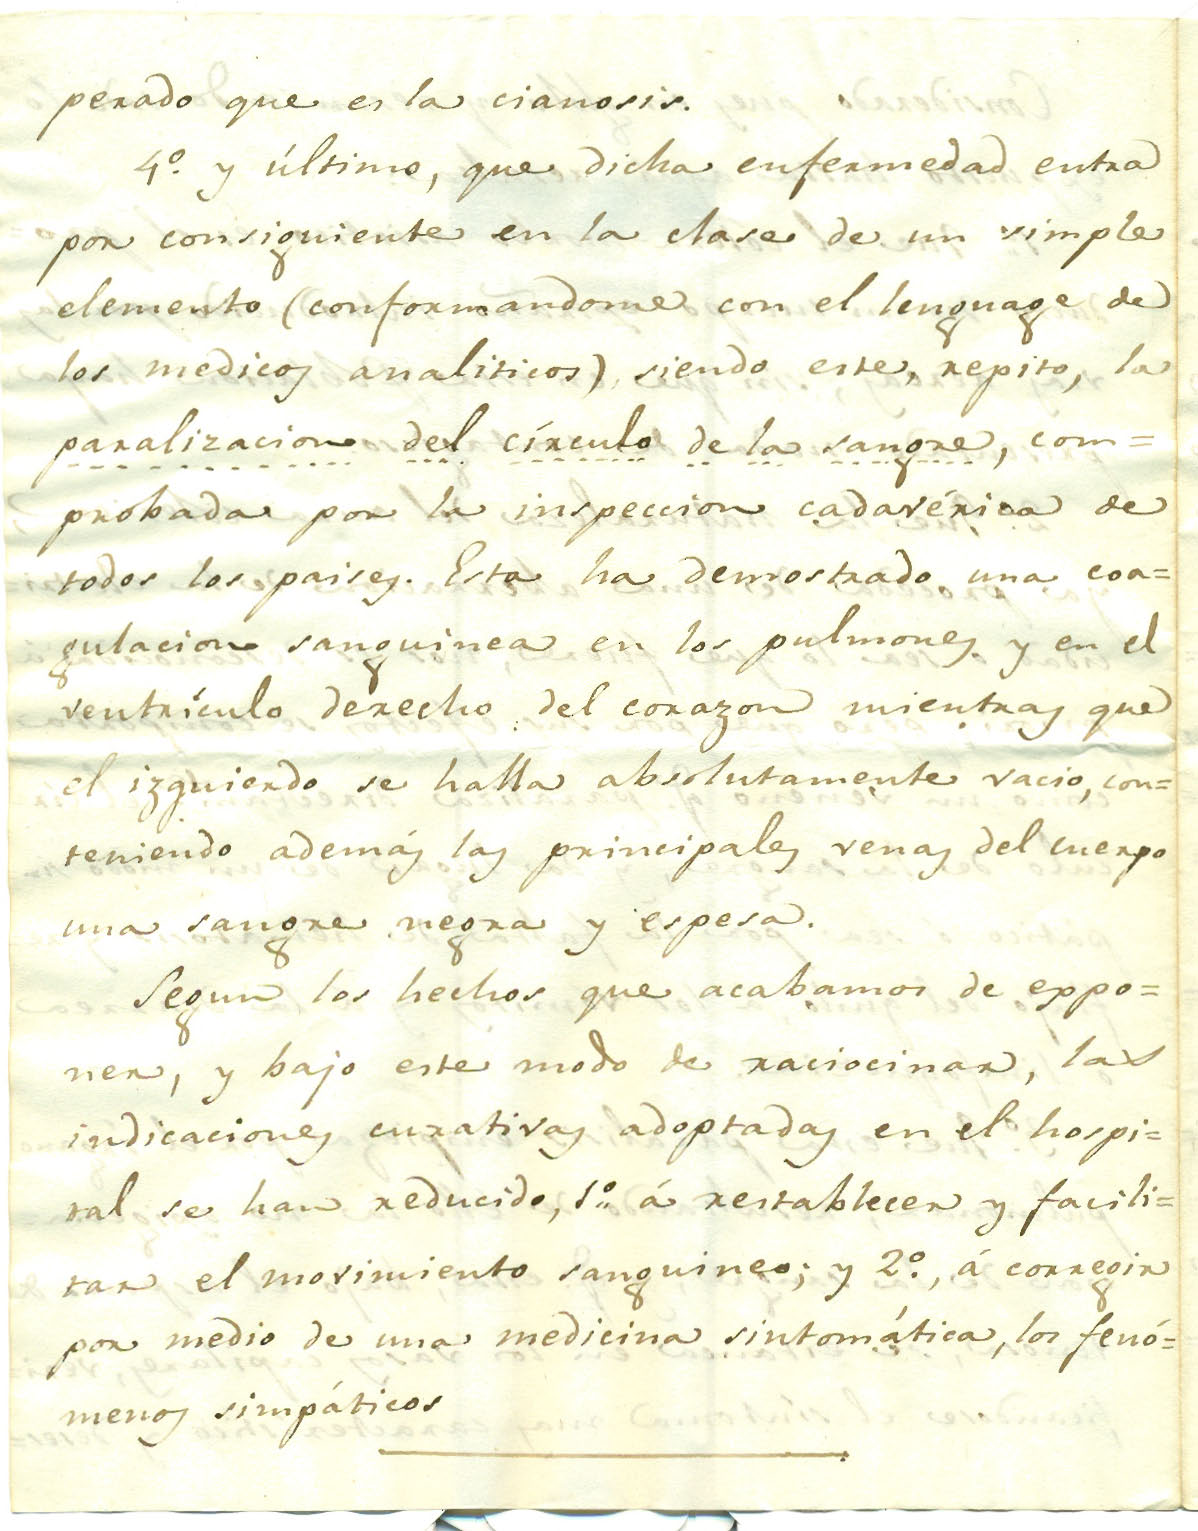 perado que es la cianosis.
4º. y último, que dicha enfermedad entra
por consiguiente en la clase de un simple
elemento (conformandome con el lenguage de
los medicos analiticos), siendo este, repito, la
paralizacion del círculo de la sangre, com=
probada por la inspeccion cadavérica de
todos los paises. Esta ha demostrado una coa=
gulacion sanguinea en los pulmones y en el
ventrículo derecho del corazon mientras que
el izquierdo se halla absolutamente vacio, con=
teniendo además las principales venas del cuerpo
una sangre negra y espesa.
Segun los hechos que acabamos de expo=
ner, y bajo este modo de raciocinar, las
indicaciones curativas adoptadas en el hospi=
tal se han reducido, 1º. á restablecer y facili=
tar el movimiento sanguineo; y 2º., á corregir
por medio de una medicina sintomática, los fenó=
menos simpáticos